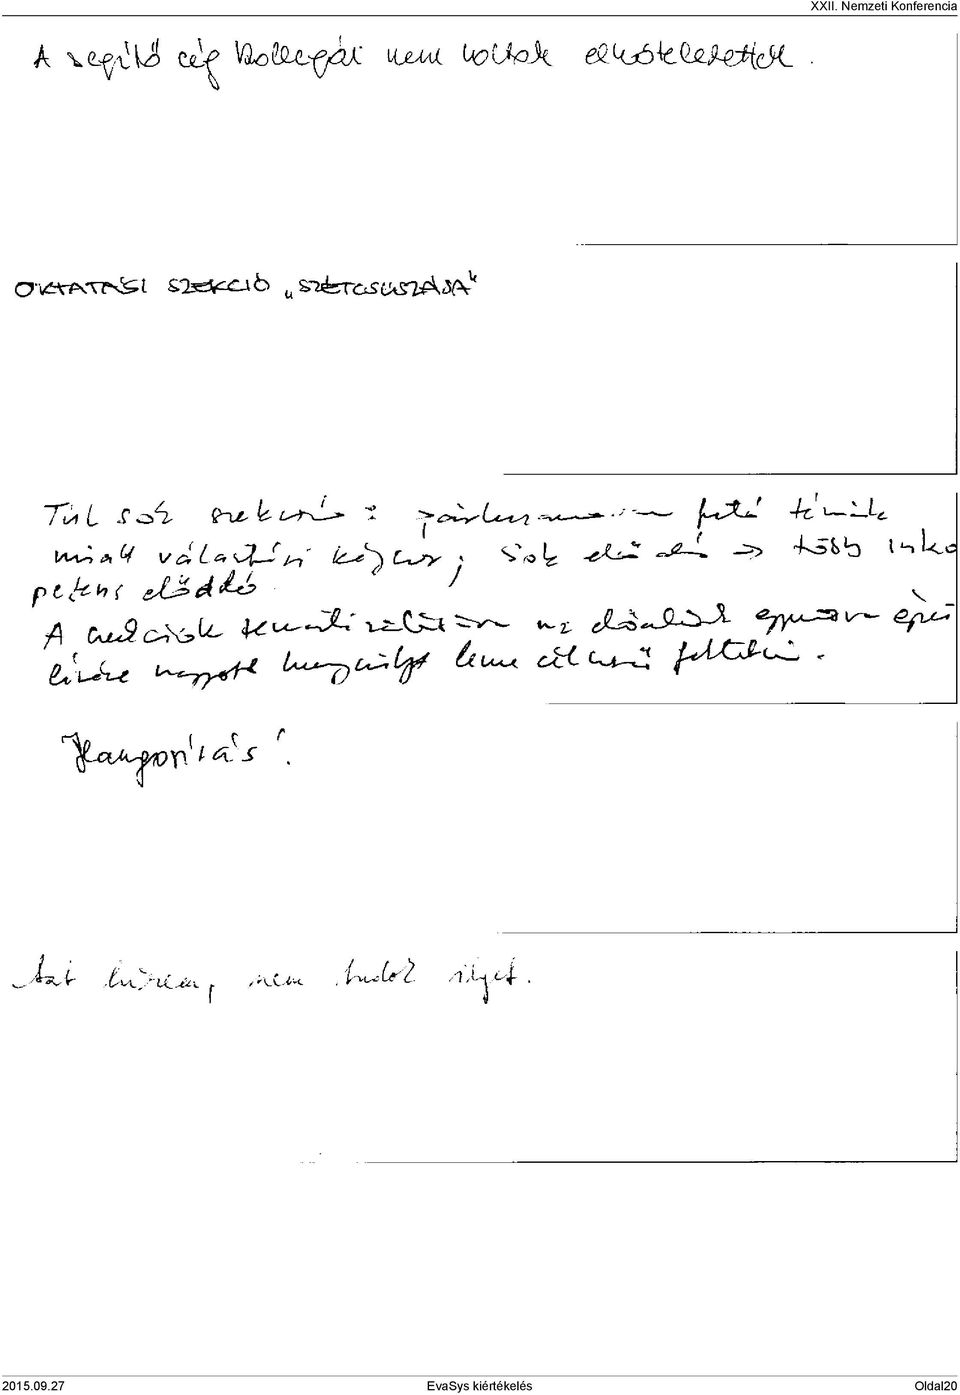 XXII. Nemzeti Konferencia
A segítő cég kollegái nem voltak elkötelezettek.
OKTATÁSI SZEKCIÓ „SZÉTCSÚSZÁSA"
Túl sok szekció: párhuzamosan futó témák
miatt választási kényszer; Sok előadó → több inko
petens előadó.
A szekciók tematizálásán az előadások egymásra épü
lésére nagyobb hangsúlyt lenne célszerű fektetni.
Hangosítás!
Azt hiszem, nem tudok ilyet.
2015.09.27 EvaSys kiértékelés Oldal20